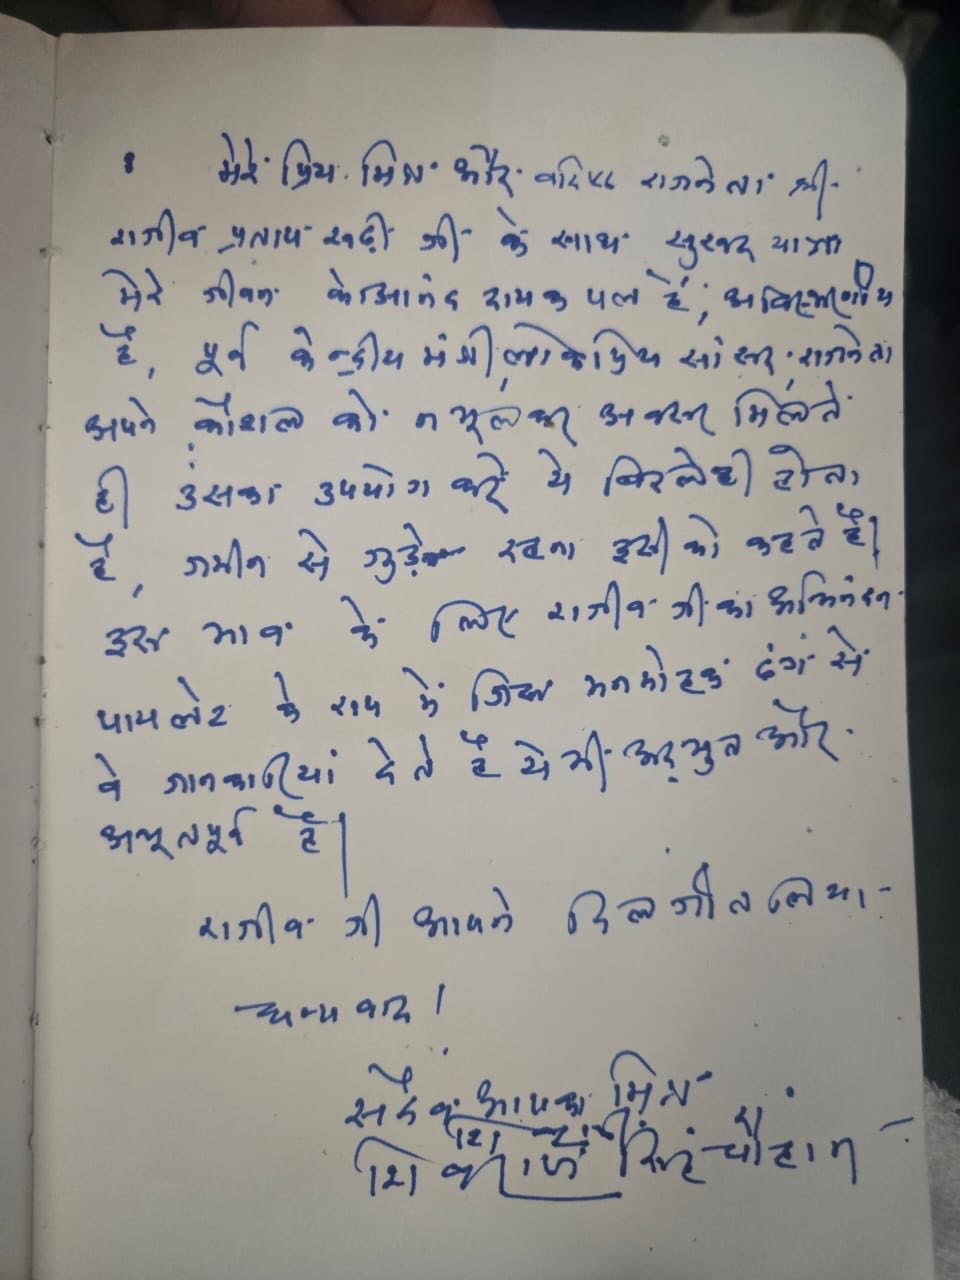 मेरे प्रिय मित्र और वरिष्ठ राजनेता श्री
राजीव प्रताप रूढ़ी जी के साथ सुखद यात्रा
मेरे जीवन के आनंद दायक पल हैं, अविस्मरणीय
है, पूर्व केन्द्रीय मंत्री, लोकप्रिय सांसद, राजनेता
अपने कौशल को न भूलकर अवसर मिलते
ही उसका उपयोग करें ये विरले ही होता
है, जमीन से जुड़े रहना इसी को कहते हैं।
इस भाव के लिए राजीव जी का अभिनंदन
पायलेट के रूप में जिस मनमोहक ढंग से
वे जानकारियां देते है ये भी अद्भुत और
अभूतपूर्व है।
राजीव जी आपने दिल जीत लिया
धन्यवाद।
सदैव आपका मित्र
शिवराज सिंह चौहान